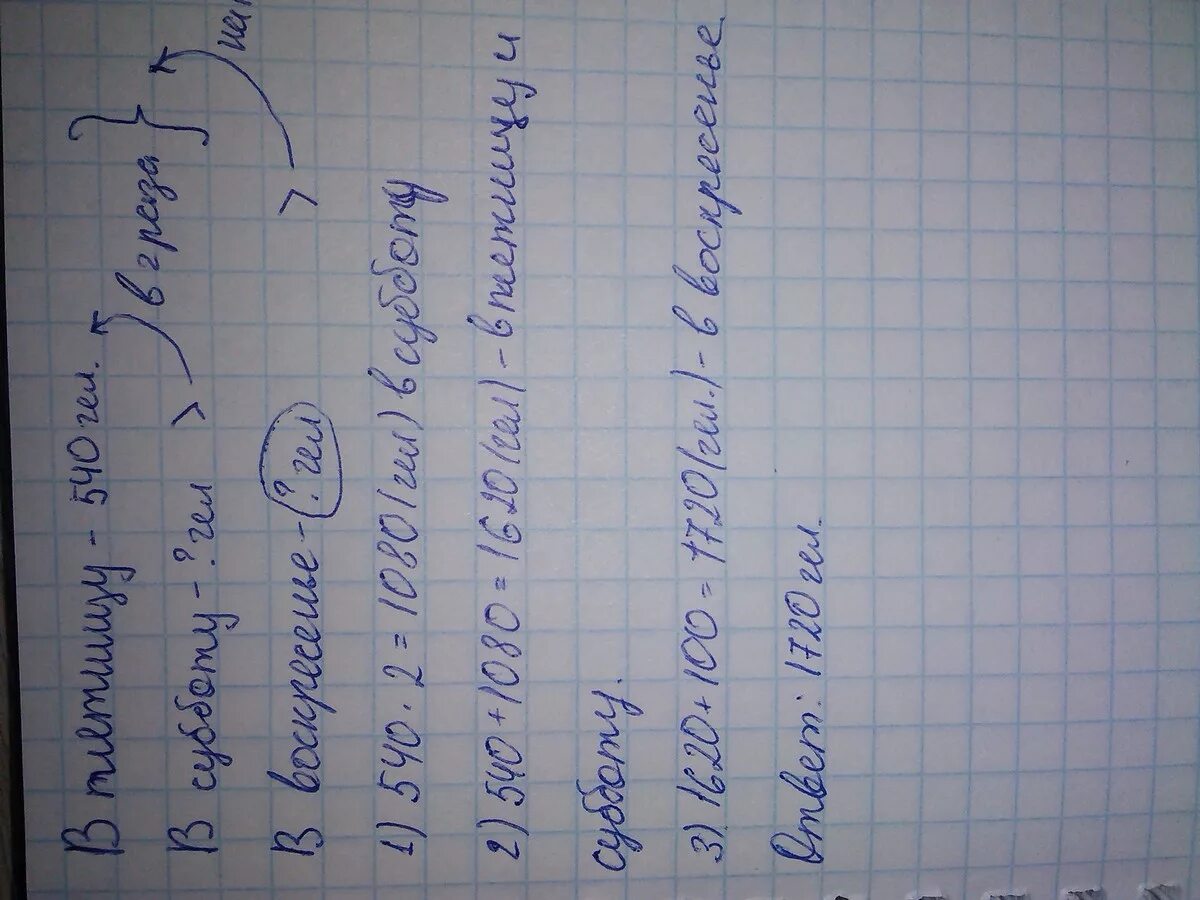 В пятницу - 540 чел.
В субботу - ? чел > в 2 раза
В воскресенье - ? чел > на
1) 540 · 2 = 1080 (чел) в субботу
2) 540 + 1080 = 1620 (чел) - в пятницу и
субботу.
3) 1620 + 100 = 1720 (чел.) - в воскресенье
Ответ: 1720 чел.